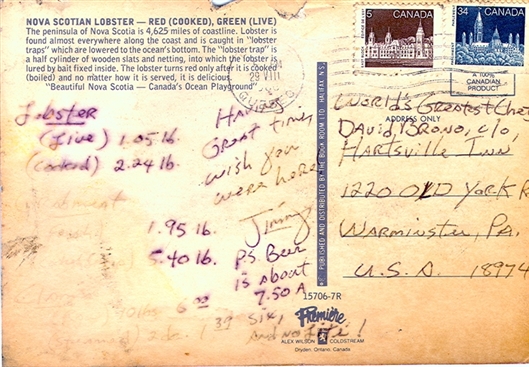 NOVA SCOTIAN LOBSTER — RED (COOKED), GREEN (LIVE)
The peninsula of Nova Scotia is 4,625 miles of coastline. Lobster is
found almost everywhere along the coast and is caught in "lobster
traps" which are lowered to the ocean's bottom. The "lobster trap" is
a half cylinder of wooden slats and netting, into which the lobster is
lured by bait fixed inside. The lobster turns red only after it is cooked
(boiled) and no matter how it is served, it is delicious.
"Beautiful Nova Scotia — Canada's Ocean Playground"
Lobster
(Live) 1.05 lb.
(Cooked) 2.24 lb.
1.95 lb.
5.40 lb.
6.00
1.39
Having
Great time,
wish you
were here
Jimmy
P.S. Beer
is about
7.50 A
Six,
And no Lite!
29 VIII
PUBLISHED AND DISTRIBUTED BY THE BOOK ROOM LTD. HALIFAX, N.S.
15706-7R
Première
ALEX WILSON COLDSTREAM
Dryden, Ontario, Canada
5 CANADA
34 CANADA
A 100%
CANADIAN
PRODUCT
ADDRESS ONLY
World's Greatest Chef
David, Brono, c/o,
Hartsville Inn
1220 OLD York R
Warminster, PA.
U.S.A. 18974